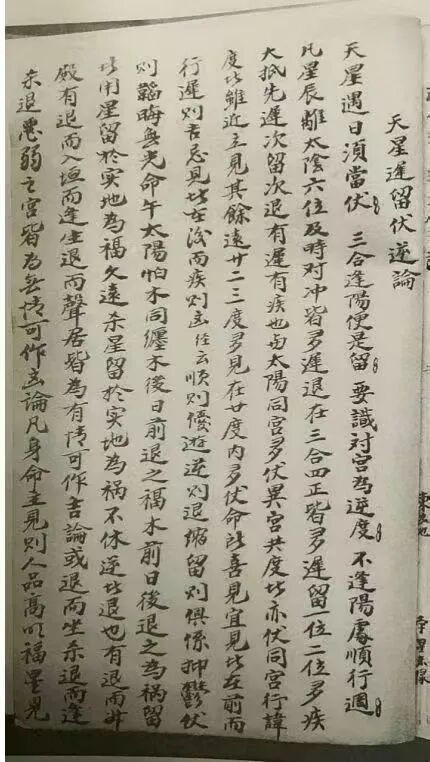 天星遲留伏逆論
天星遇日須當伏 三合逢陽便是留 要識對宮為逆度 不逢陽處順行週
凡星辰離太陰六位及時对冲皆多遲退在三合四正皆多遲留一位二位多疾
大抵先遲次留次退有遲有疾也与太陽同宮多伏異宮共度此亦伏同宮行諱
度此雖近立見其餘遠廿二三度多見在廿度内多伏命此喜見宜見此在前而
行遲則吉忌見此在後而疾則凶经云順則優遊逆則退縮留則俱係抑鬱伏
則韜晦無光命午太陽怕木同纏木後日前退之福木前日後退之為禍留
此用星留於实地為福久遠杀星留於实地為祸不休逆此退也有退而升
殿有退而入垣而逢生退而聲居皆為有情可作吉論或退而坐杀退而逢
杀退惡弱之宮皆為無情可作凶論凡身命主見則人品高明福星見